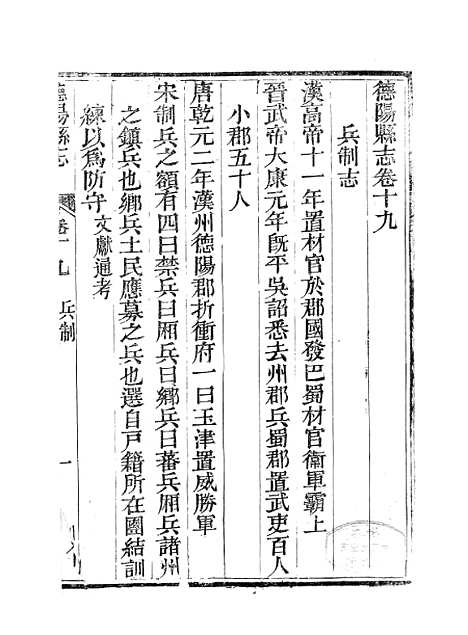 德陽縣志卷十九
兵制志
漢高帝十一年置材官於郡國發巴蜀材官衞軍霸上
晉武帝大康元年旣平吳詔悉去州郡兵蜀郡置武吏百人
小郡五十人
唐乾元二年漢州德陽郡折衝府一曰玉津置威勝軍
宋制兵之額有四曰禁兵曰厢兵曰鄉兵曰蕃兵厢兵諸州
之鎮兵也鄉兵土民應募之兵也選自戸籍所在團結訓
練以爲防守文獻通考
德陽縣志 卷十九 兵制 一